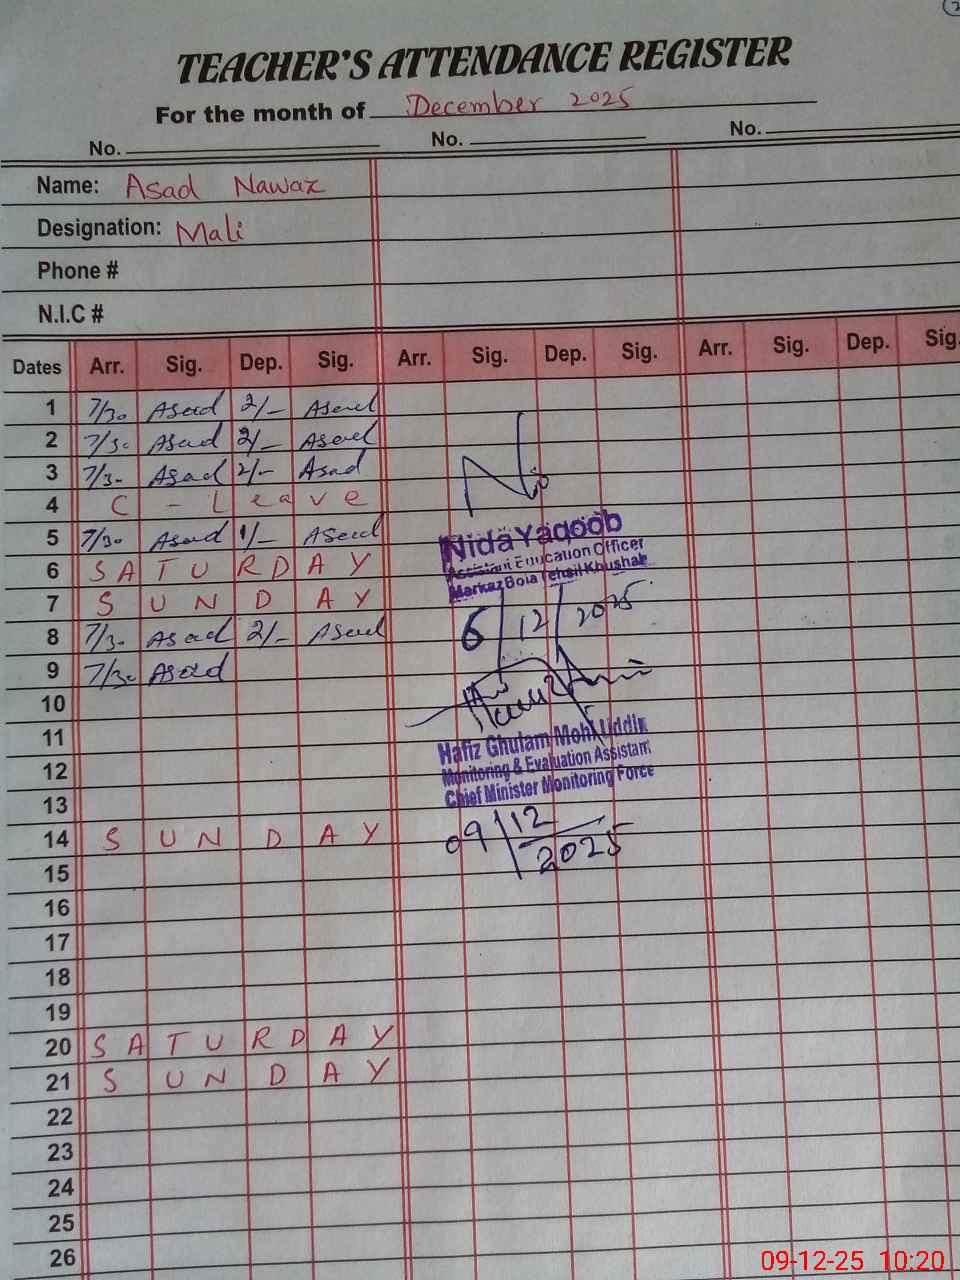 TEACHER'S ATTENDANCE REGISTER
For the month of December 2025
No. No. No.
Name: Asad Nawaz
Designation: Mali
Phone #
N.I.C #
Dates Arr. Sig. Dep. Sig. Arr. Sig. Dep. Sig. Arr. Sig. Dep. Sig.
1 7/30 Asad 2/- Asad
2 7/30 Asad 2/- Asad
3 7/30 Asad 2/- Asad
4 C - Leave
5 7/30 Asad 1/- Asad
6 SATURDAY
7 SUNDAY
8 7/30 Asad 2/- Asad
9 7/30 Asad
10
11
12
13
14 SUNDAY
15
16
17
18
19
20 SATURDAY
21 SUNDAY
22
23
24
25
26
Nida Yaqoob
Assistant Education Officer
Markaz Bola Tehsil Khushab
6/12/2025
Hafiz Ghulam Mohi Uddin
Monitoring & Evaluation Assistant
Chief Minister Monitoring Force
09/12/2025
09-12-25 10:20